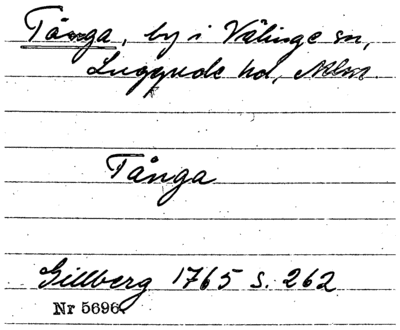 Tånga, by i Välinge sn,
Luggude hd, Mlm.
Tånga
Gillberg 1765 s. 262
Nr 5696.